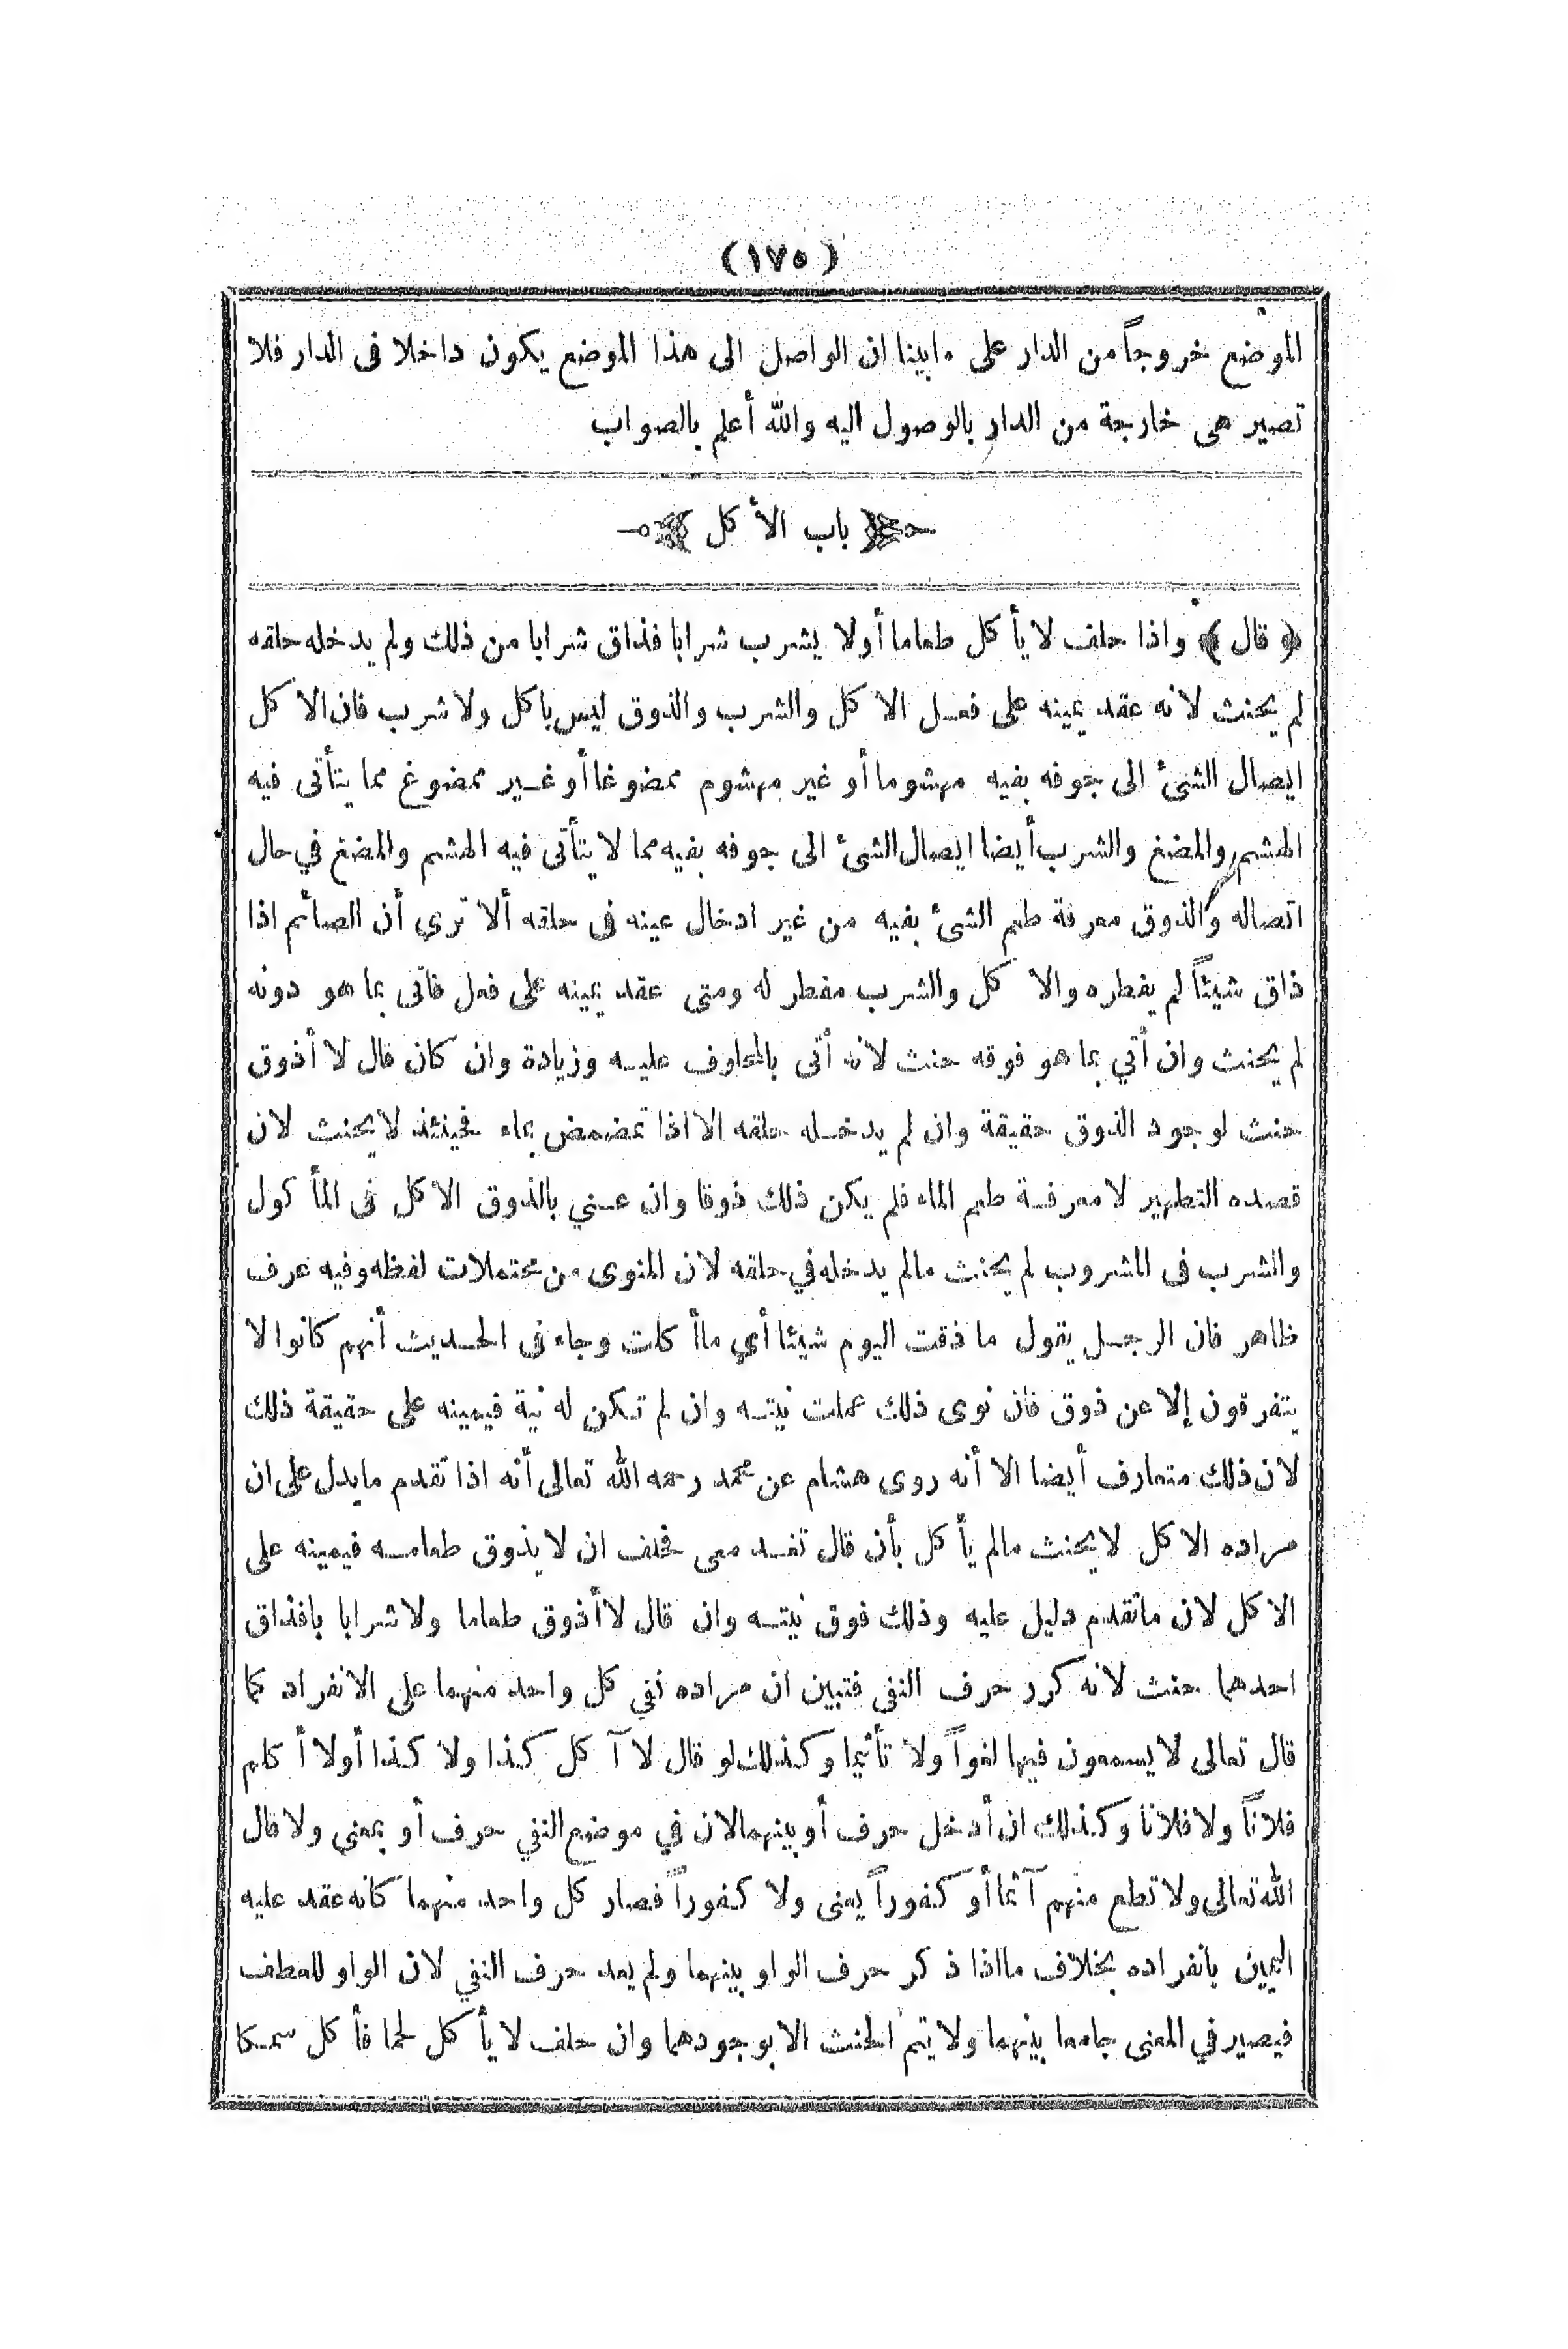 (١٧٥)
الموضع خروجاً من الدار على ما بينا ان الواصل الى هذا الموضع يكون داخلا فى الدار فلا
تصير هى خارجة من الدار بالوصول اليه والله أعلم بالصواب
باب الأكل
﴿ قال ﴾ واذا حلف لا يأكل طعاما أولا يشرب شرابا فذاق شرابا من ذلك ولم يدخله حلقه
لم يحنث لانه عقد يمينه على فعل الاكل والشرب والذوق ليس باكل ولا شرب فان الاكل
ايصال الشئ الى جوفه بفيه مهشوما أو غير مهشوم ممضوغا أو غير ممضوغ مما يتأتى فيه
الهشم والمضغ والشرب أيضا ايصال الشئ الى جوفه بفيه مما لا يتأتى فيه الهشم والمضغ في حال
اتصاله والذوق معرفة طعم الشئ بفيه من غير ادخال عينه فى حلقه ألا ترى أن الصائم اذا
ذاق شيئاً لم يفطره والاكل والشرب مفطر له ومتى عقد يمينه على فعل فاتى بما هو دونه
لم يحنث وان أتي بما هو فوقه حنث لانه أتى بالمحلوف عليه وزيادة وان كان قال لا أذوق
حنث لوجود الذوق حقيقة وان لم يدخله حلقه الا اذا تمضمض بماء فحينئذ لا يحنث لان
قصده التطهير لا معرفة طعم الماء فلم يكن ذلك ذوقا وان عني بالذوق الاكل فى المأكول
والشرب فى المشروب لم يحنث مالم يدخله في حلقه لان المنوى من محتملات لفظه وفيه عرف
ظاهر فان الرجل يقول ما ذقت اليوم شيئا أي ماأكلت وجاء فى الحديث أنهم كانوا لا
يتفرقون إلا عن ذوق فان نوى ذلك عملت نيته وان لم تكن له نية فيمينه على حقيقة ذلك
لان ذلك متعارف أيضا الا أنه روى هشام عن محمد رحمه الله تعالى أنه اذا تقدم ما يدل على ان
مراده الاكل لا يحنث مالم يأكل بأن قال تغد معى فحلف ان لا يذوق طعامه فيمينه على
الاكل لان ماتقدم دليل عليه وذلك فوق نيته وان قال لا أذوق طعاما ولا شرابا بافذاق
احدهما حنث لانه كرر حرف النفى فتبين ان مراده نفي كل واحد منهما على الانفراد كما
قال تعالى لا يسمعون فيها لغواً ولا تأثيما وكذلك لو قال لا آكل كذا ولا كذا أولا أكلم
فلاناً ولا فلانا وكذلك ان أدخل حرف أو بينهما لان في موضع النفي حرف أو بمعنى ولا قال
الله تعالى ولا تطع منهم آثما أو كفوراً يعنى ولا كفوراً فصار كل واحد منهما كانه عقد عليه
اليمين بانفراده بخلاف مااذا ذكر حرف الواو بينهما ولم يعد حرف النفي لان الواو للعطف
فيصير في المعنى جامعا بينهما ولا يتم الحنث الا بوجودهما وان حلف لا يأكل لحما فأكل سمكا